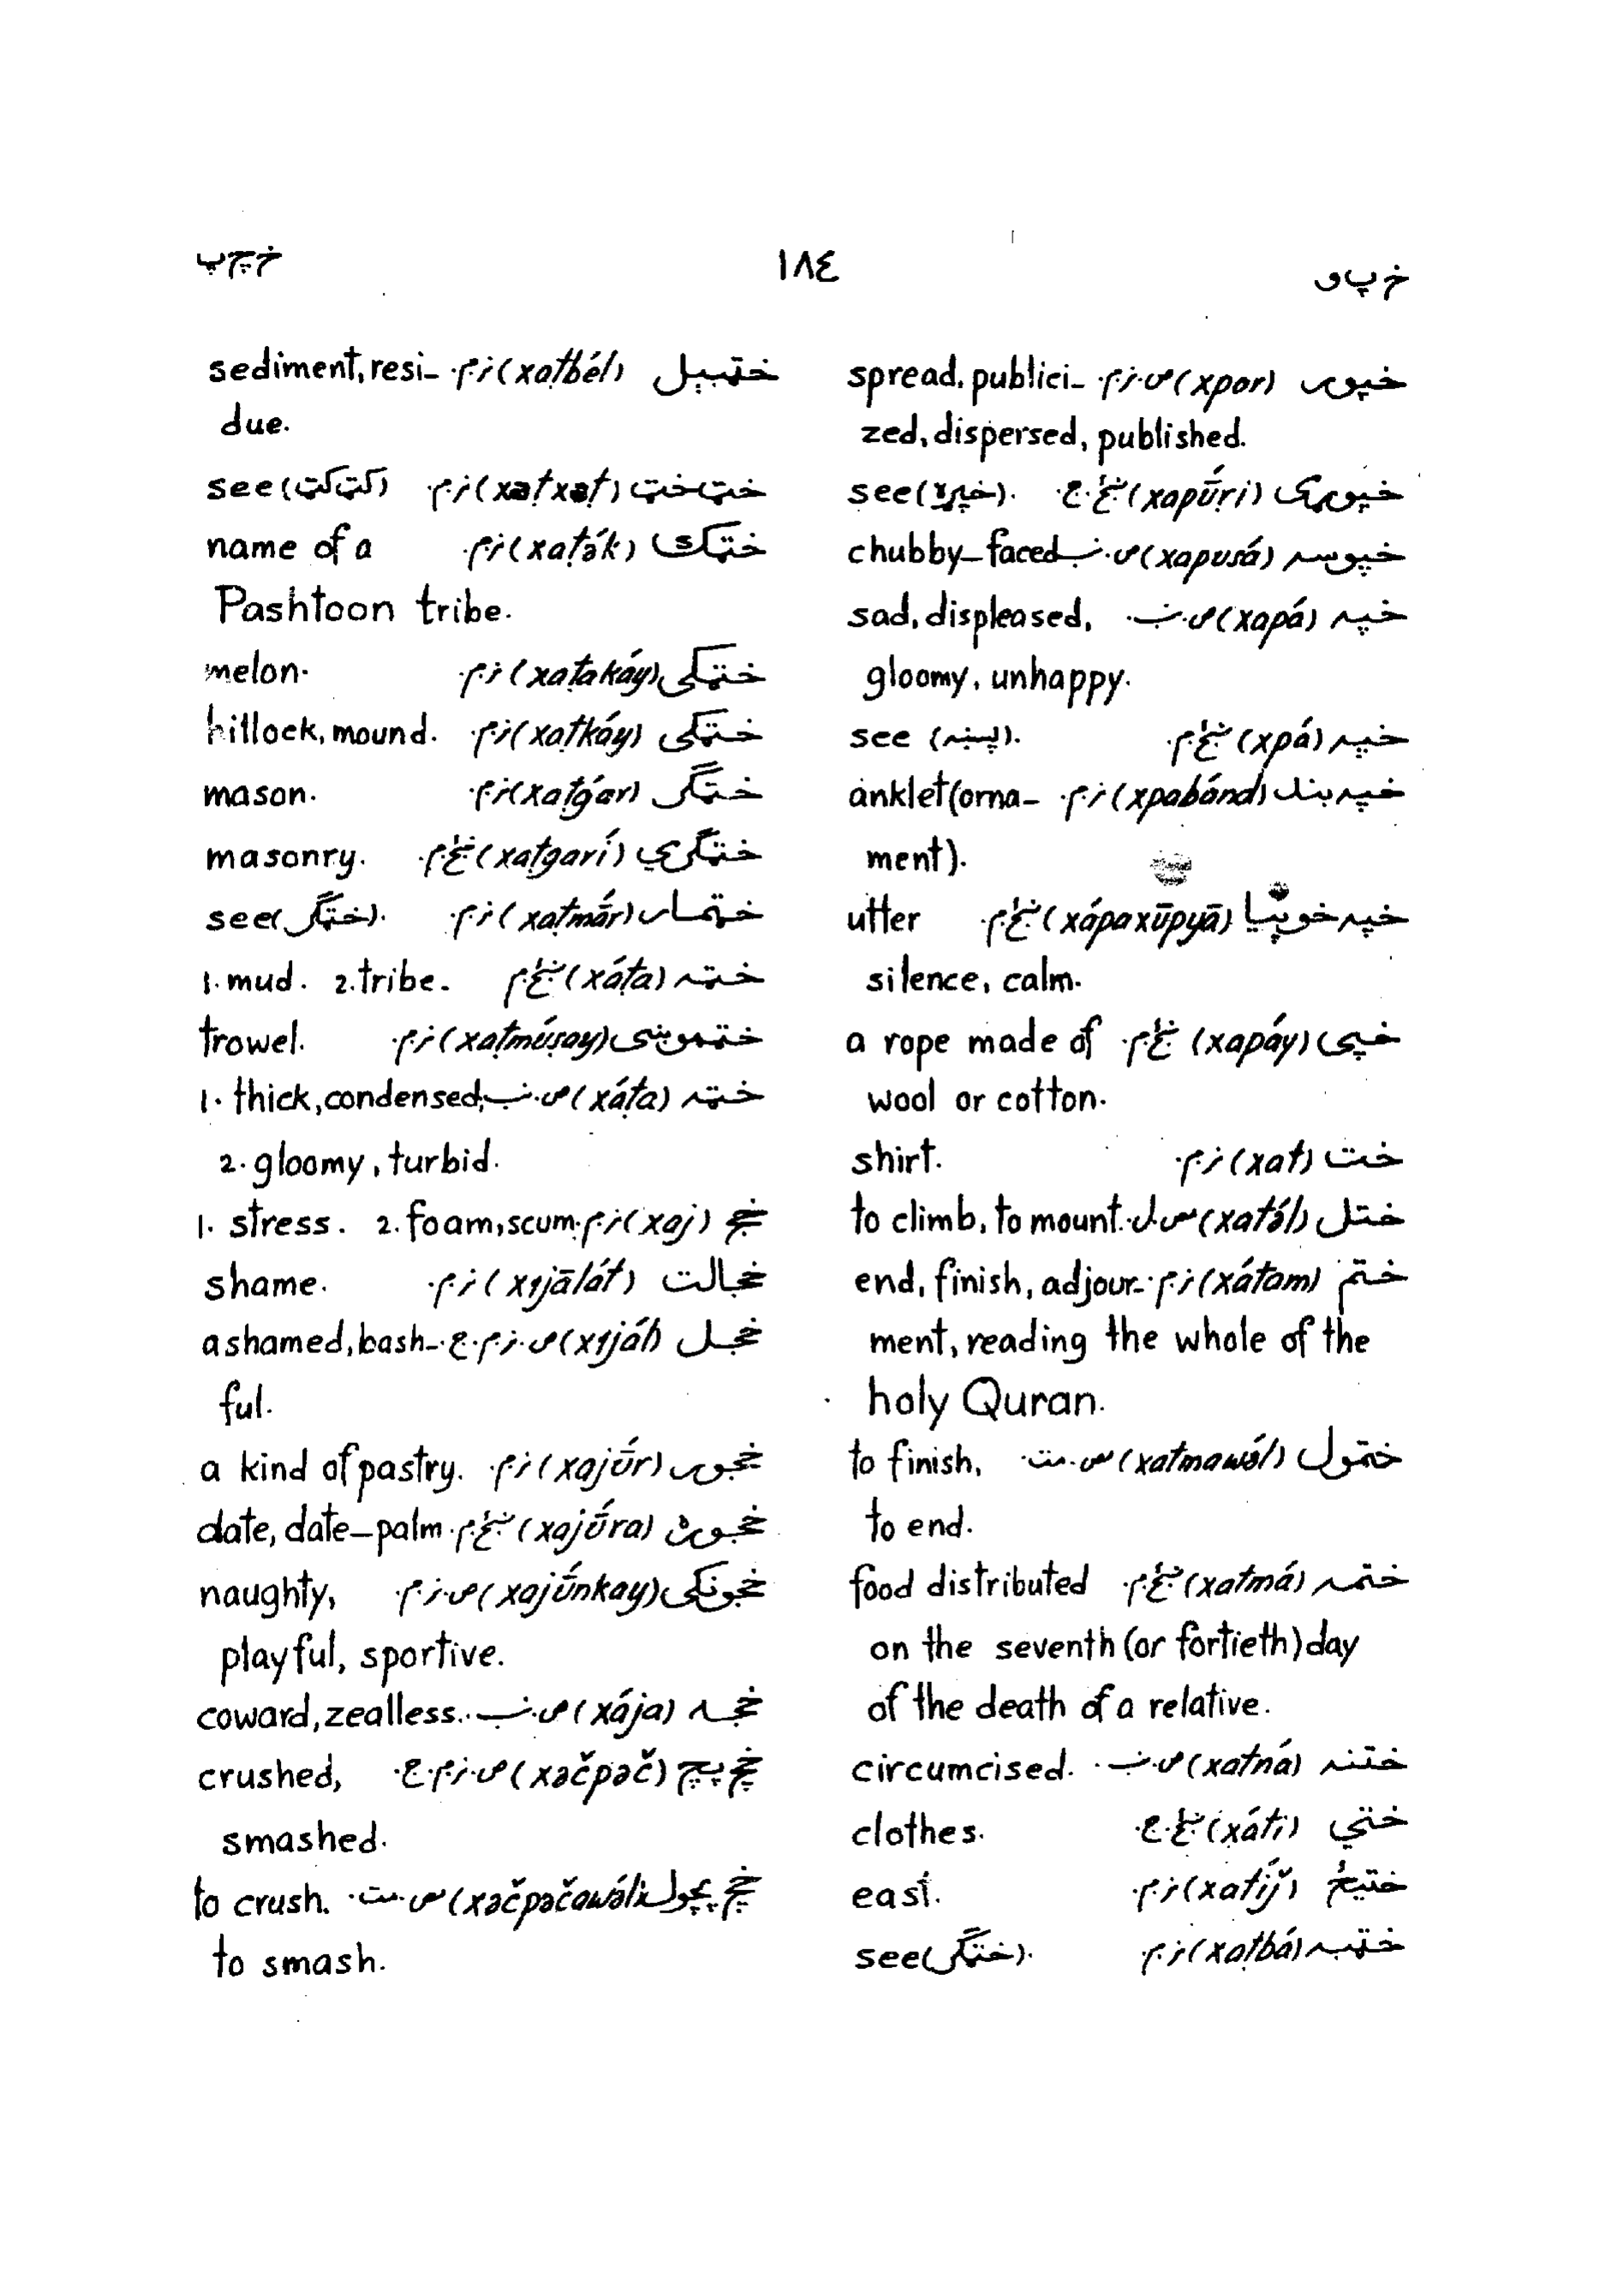 خ پ و
١٨٤
خ چ پ
خپور (xpor) ص.نر.م. spread, publici-
zed, dispersed, published.
خپوړې (xapū́ṛi) ښځ.ج. see (خپړه).
خپوسه (xapusá) ص. chubby-faced
خپه (xapá) ص. sad, displeased,
gloomy, unhappy.
خپه (xpá) ښځ.م. see (پښه).
خپه بند (xpabánd) نر.م. anklet (orna-
ment).
خپه خوپيا (xápaxūpyā) ښځ.م. utter
silence, calm.
خپۍ (xapáy) ښځ.م. a rope made of
wool or cotton.
خت (xat) نر.م. shirt.
ختل (xatə́l) مص.ل. to climb, to mount.
ختم (xátam) نر.م. end, finish, adjour-
ment, reading the whole of the
holy Quran.
ختمول (xatmawə́l) مص.مت. to finish,
to end.
ختمه (xatmá) ښځ.م. food distributed
on the seventh (or fortieth) day
of the death of a relative.
ختنه (xatná) ص. circumcised.
ختې (xáti) ښځ.ج. clothes.
ختيځ (xatíǰ) نر.م. east.
خټبه (xaṭbá) نر.م. see (خټګر).
خټبېل (xaṭbél) نر.م. sediment, resi-
due.
خټ خټ (xəṭxəṭ) نر.م. see (کټ کټ)
خټک (xaṭə́k) نر.م. name of a
Pashtoon tribe.
خټکی (xaṭakáy) نر.م. melon.
خټکی (xaṭkáy) نر.م. hillock, mound.
خټګر (xaṭgár) نر.م. mason.
خټګري (xaṭgarí) ښځ.م. masonry.
خټمار (xaṭmā́r) نر.م. see (خټګر).
خټه (xáṭa) ښځ.م. 1. mud. 2. tribe.
خټموښی (xaṭmúṣay) نر.م. trowel.
خټه (xáṭa) ص. 1. thick, condensed,
2. gloomy, turbid.
خج (xaj) نر.م. 1. stress. 2. foam, scum.
خجالت (xıjālát) نر.م. shame.
خجل (xıjál) ص.نر.م.ج. ashamed, bash-
ful.
خجور (xajū́r) نر.م. a kind of pastry.
خجوره (xajū́ra) ښځ.م. date, date-palm
خجونکی (xajū́nkay) ص.نر.م. naughty,
playful, sportive.
خجه (xája) ص. coward, zealless.
خچ پچ (xəčpəč) ص.نر.م.ج. crushed,
smashed.
خچ پچول (xəčpəčawə́l) مص.مت. to crush.
to smash.